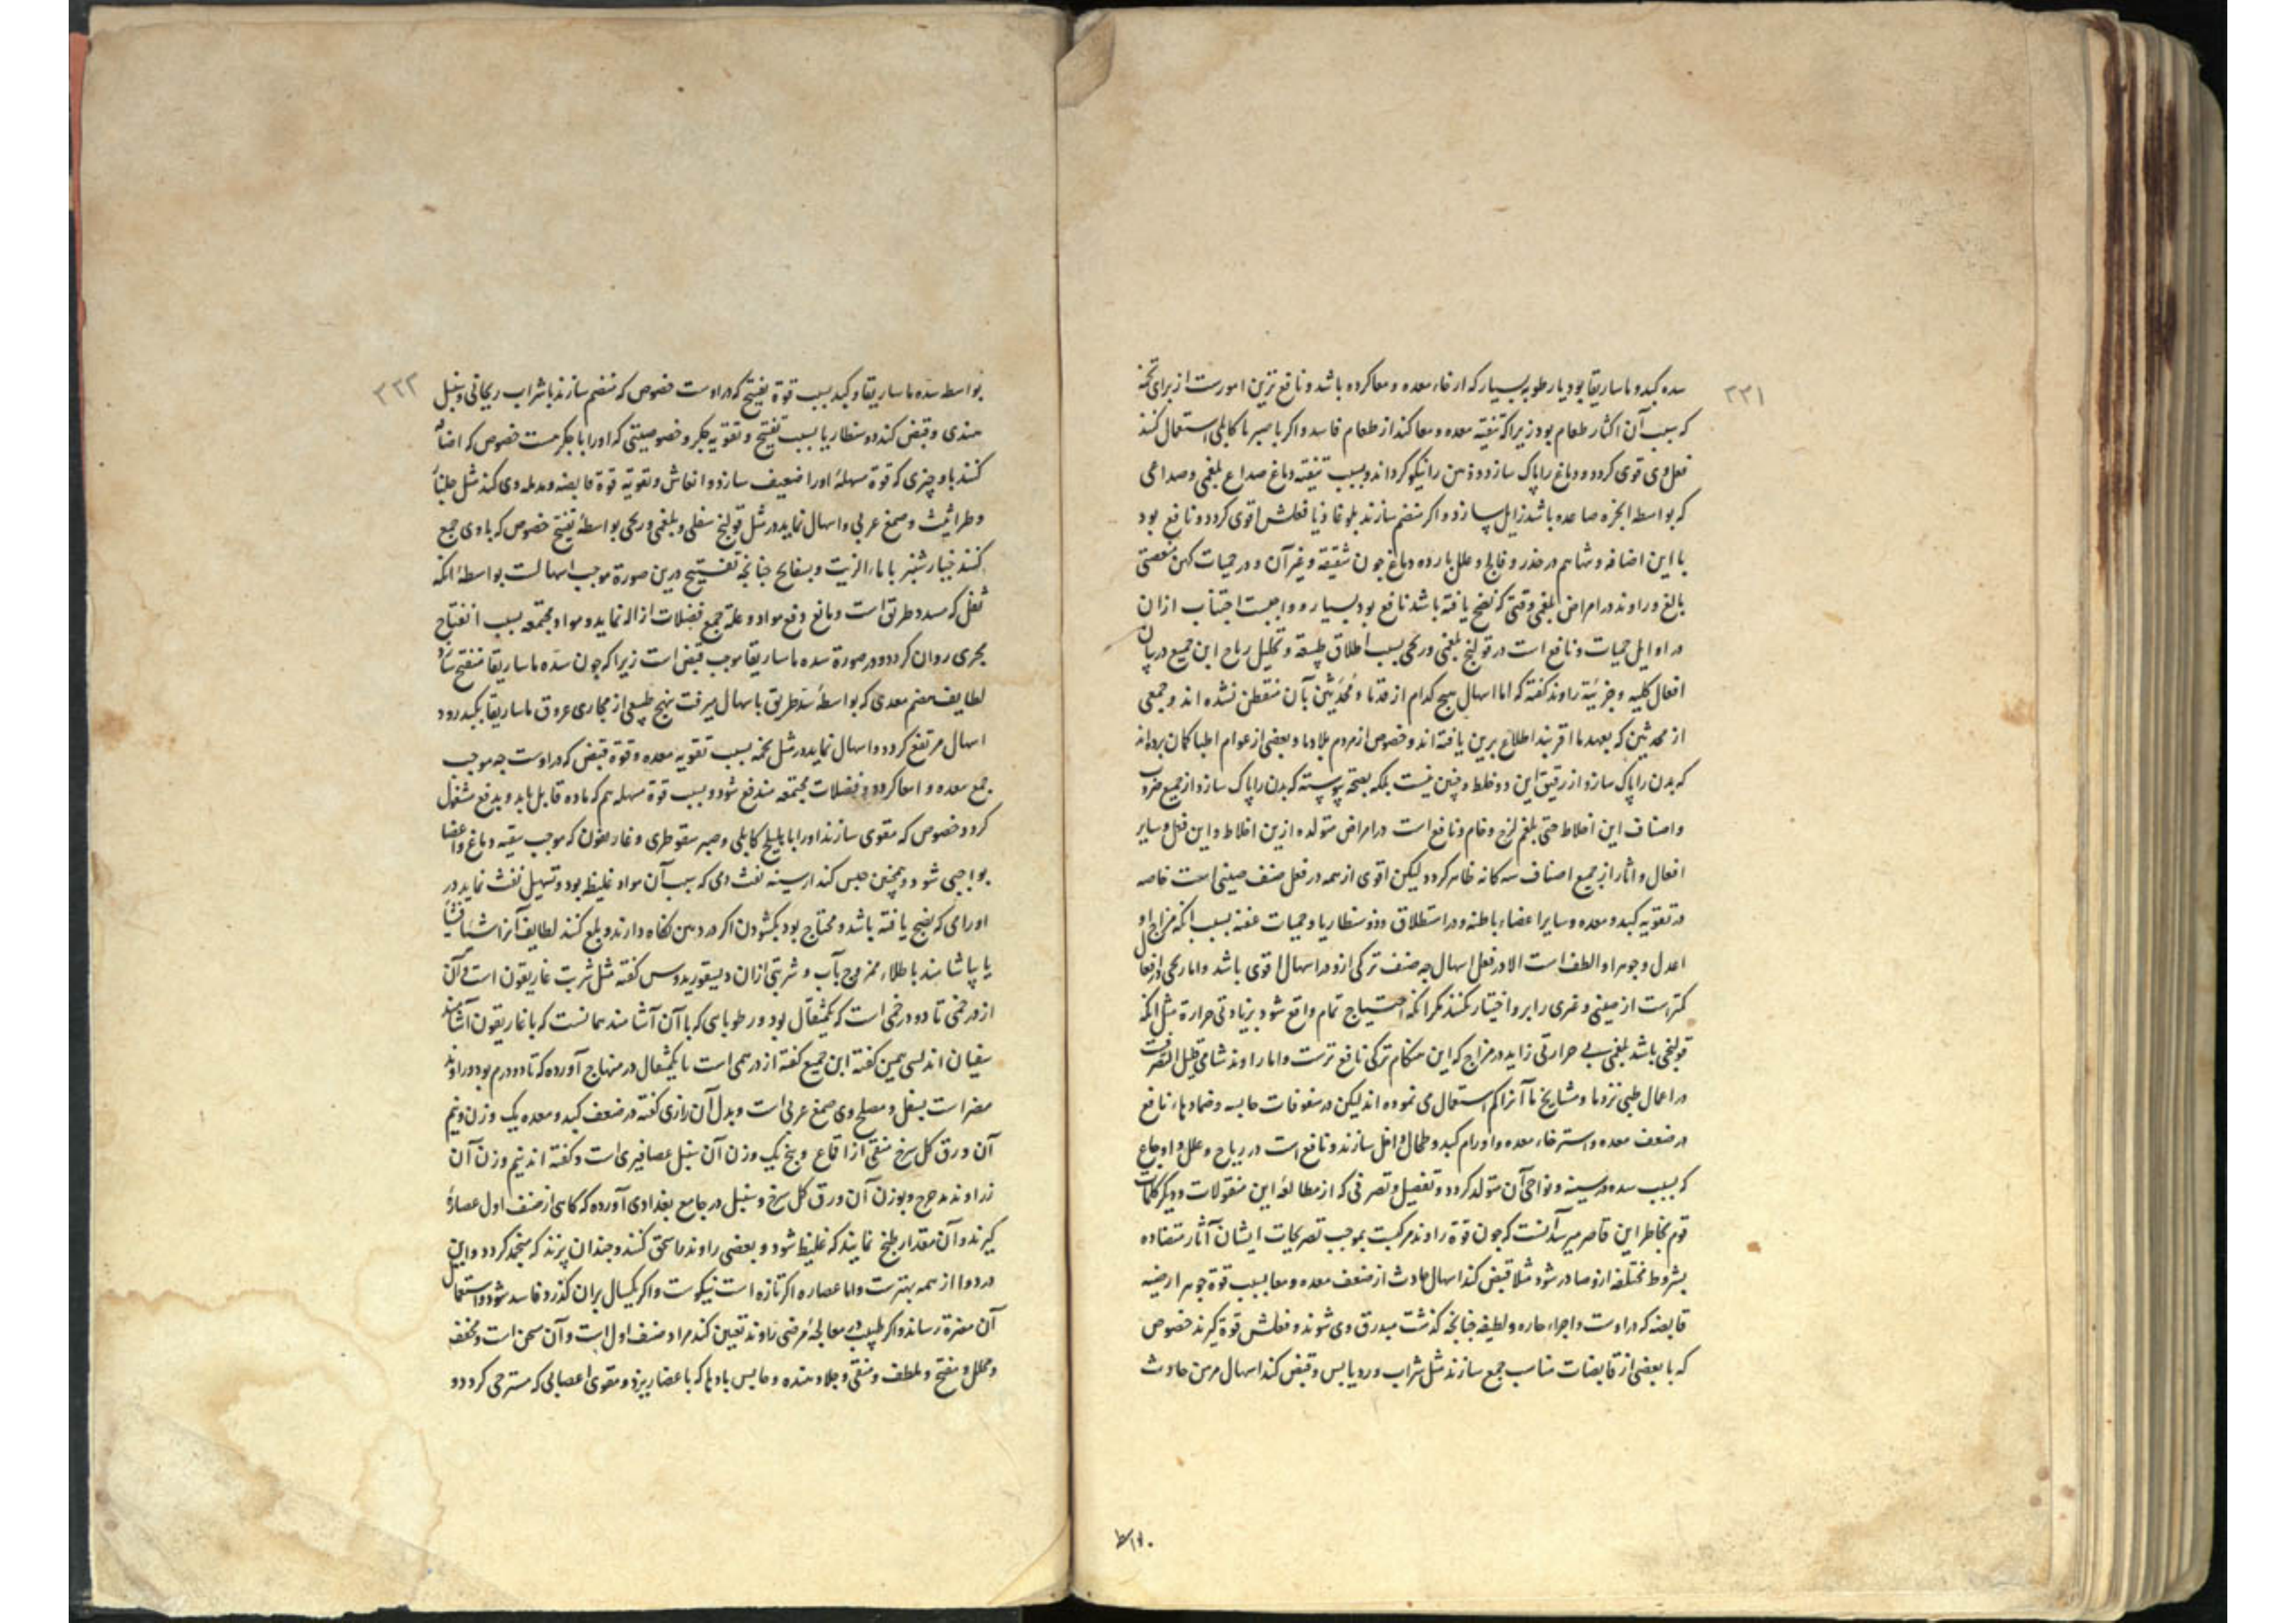 ٣٣١
سده کبد و ماساریقا بود یا رطوبه بسیار که ارخاء معده و معا کرده باشد و نافع ترین امورست از برای تخمه
که سبب آن اکثار طعام بود زیرا که تنقیه معده و معا کند از طعام فاسد و اکر با صبر یا کابلی استعمال کنند
فعل وی قوی کردد و دماغ را پاک سازد و ذهن را نیکو کرداند و بسبب تنقیه دماغ صداع بلغمی و صداعی
که بواسطه ابخره صاعده باشد زایل سازد و اکر منضم سازند بلوغاذیا فعلش اقوی کردد و نافع بود
با این اضافه و شاهم در خدر و فالج و علل بارده دماغ چون شقیقه و غیر آن و در حمیات کهن
بالغ و راوند در امراض بلغمی وقتی که نضج یافته باشد نافع بود بسیار و واجبست اجتناب ازان
در اوایل حمیات و نافع است در قولنج بلغمی و ریحی بسبب اطلاق طبیعه و تحلیل ریاح ابن جمیع در بیان
افعال کلیه و جزئیة راوند کفته که اما اسهال هیچ کدام از قدما و مُحدَثین بآن متفطن نشده اند و جمعی
از محدثین که بعهد ما اقربند اطلاع برین یافته اند و خصوص از مردم بلاد ما و بعضی از عوام اطبا کمان برده اند
که بدن را پاک سازد از رقیق این دو خلط و چنین نیست بلکه بصحة پیوسته که بدن را پاک سازد از جمیع ضروب
و اصناف این اخلاط حتی بلغم لزج و خام و نافع است در امراض متولده ازین اخلاط و این فعل و سایر
افعال و اثار از جمیع اصناف سه کانه ظاهر کردد لیکن اقوی از همه در فعل صنف صینی است خاصه
در تقویه کبد و معده و سایر اعضاء باطنه و در استطلاق و ذوسنطاریا و حمیات عفنه بسبب آنکه مزاج او
اعدل و جوهر او الطف است الا در فعل اسهال چه صنف ترکی ازو در اسهال اقوی باشد و اما
کمترست از صینی و غیری را برو اختیار نکنند مکر آنکه احتیاج تمام واقع شود بزیادتی حرارة مثل آنکه
قولنجی باشد بلغمی بی حرارتی زاید در مزاج که این هنکام ترکی نافع ترست و اما راوند شامی قلیل التصرفست
در اعمال طبی نزد ما و مشایخ ما آنرا کم استعمال می نموده اند لیکن در سفوفات حابسه و ضمادهاء نافع
در ضعف معده و استرخاء معده و اورام کبد و طحال داخل سازند و نافع است در ریاح و علل و اوجاع
که بسبب سده در سینه و نواحی آن متولد کردد و تفصیل و تصرفی که از مطالعهٔ این منقولات و دیکر کلمات
قوم بخاطر این قاصر میرسد آنست که چون قوة راوند مرکبست بموجب تصریحات ایشان آثار متضاده
بشروط مختلفه ازو صادر شود مثلا قبض کند اسهال حادث از ضعف معده و معا بسبب قوة جوهر ارضیه
قابضه که در اوست و اجزاء حاره و لطیفه چنانچه کذشت مبدرق وی شوند و فعلش قوة کیرند خصوص
که با بعضی از قابضات مناسب جمع سازند مثل شراب ورد یابس و قبض کند اسهال مزمن حادث
٣٣٢
بواسطه سده ماساریقا و کبد بسبب قوة تفتیح که در اوست خصوص که منضم سازند باشراب ریحانی و سنبل
هندی و قبض کند ذوسنطاریا بسبب تفتیح و تقویه جکر و خصوصیتی که اورا با جکر هست خصوص که اضافه
کنند باو چیزی که قوة مسهلهٔ اورا ضعیف سازد و انعاش و تقویة قوة قابضه و مدمله وی کند مثل
و طراثیث و صمغ عربی و اسهال نماید در مثل قولنج سفلی و بلغمی و ریحی بواسطهٔ تفتیح خصوص که با وی جمع
کنند خیارشنبر با ماء الزیت و بسفایج چنانچه تفتیح درین صورة موجب اسهالست بواسطهٔ آنکه
ثفل که مسدد طریق است و مانع دفع مواد و علة جمع فضلات ازاله نماید و مواد مجتمعه بسبب انفتاح
مجری روان کردد و در صورة سده ماساریقا موجب قبض است زیرا که چون سدّه ماساریقا منفتح شد
لطایف هضم معدی که بواسطهٔ سدّ طریق باسهال میرفت بنهج طبیعی از مجاری عروق ماساریقا بکبد رود
اسهال مرتفع کردد و اسهال نماید در مثل تخمه بسبب تقویه معده و قوة قبض که در اوست چه موجب
جمع معده و امعا کردد و فضلات مجتمعه مندفع شود و بسبب قوة مسهله هم که ماده قابل یابد و بدفع مشغول
کردد خصوص که مقوی سازند اورا بابلیلج کابلی و صبر سقوطری و غاریقون که موجب تنقیه دماغ و اعضا
بواجبی شود و همچنین حبس کند از سینه نفث دمی که سبب آن مواد غلیظ بود و تسهیل نفث نماید در
اورامی که نضج یافته باشد و محتاج بود بکشودن اکر در دهن نکاه دارند و بلع کنند لطایف آنرا
یا بیاشامند با طلاء ممزوج بآب و شربتی ازان دیسقوریدوس کفته مثل شربت غاریقون است بی آن
از درخمی تا دو درخمی است که یکمثقال بود و رطوباتی که با آن آشامند همانست که با غاریقون آشامند
سفیان اندلسی همین کفته ابن جمیع کفته از درهمی است تا یکمثقال در منهاج آورده که تا دو درم بود و راوند
مضر است بسفل و مصلح وی صمغ عربی است و بدل آن رازی کفته در ضعف کبد و معده یک وزن و نیم
آن ورق کل سرخ منقی از اقماع و پنج یک وزن آن سنبل عصافیری است و کفته اند نیم وزن آن
زراوند مدحرج و بوزن آن ورق کل سرخ و سنبل در جامع بغدادی آورده که کاهی از صنف اول عصارهٔ
کیرند و آن مقدار طبخ نمایند که غلیظ شود و بعضی راوند را سحق کنند و چندان پزند که منجمد کردد و این
در دوا از همه بهترست و اما عصاره اکر تازه است نیکوست و اکر یکسال بران کذرد فاسد شود و استعمال
آن مضرة رساند و اکر طبیب در معالجهٔ مرضی راوند تعیین کند مراد صنف اول است و آن مسخن است و مجفف
و محلل و مفتح و ملطف و منقی و جلا دهنده و حابس بادها که باعضا ریزد و مقوی اعصابی که مسترخی کردد و